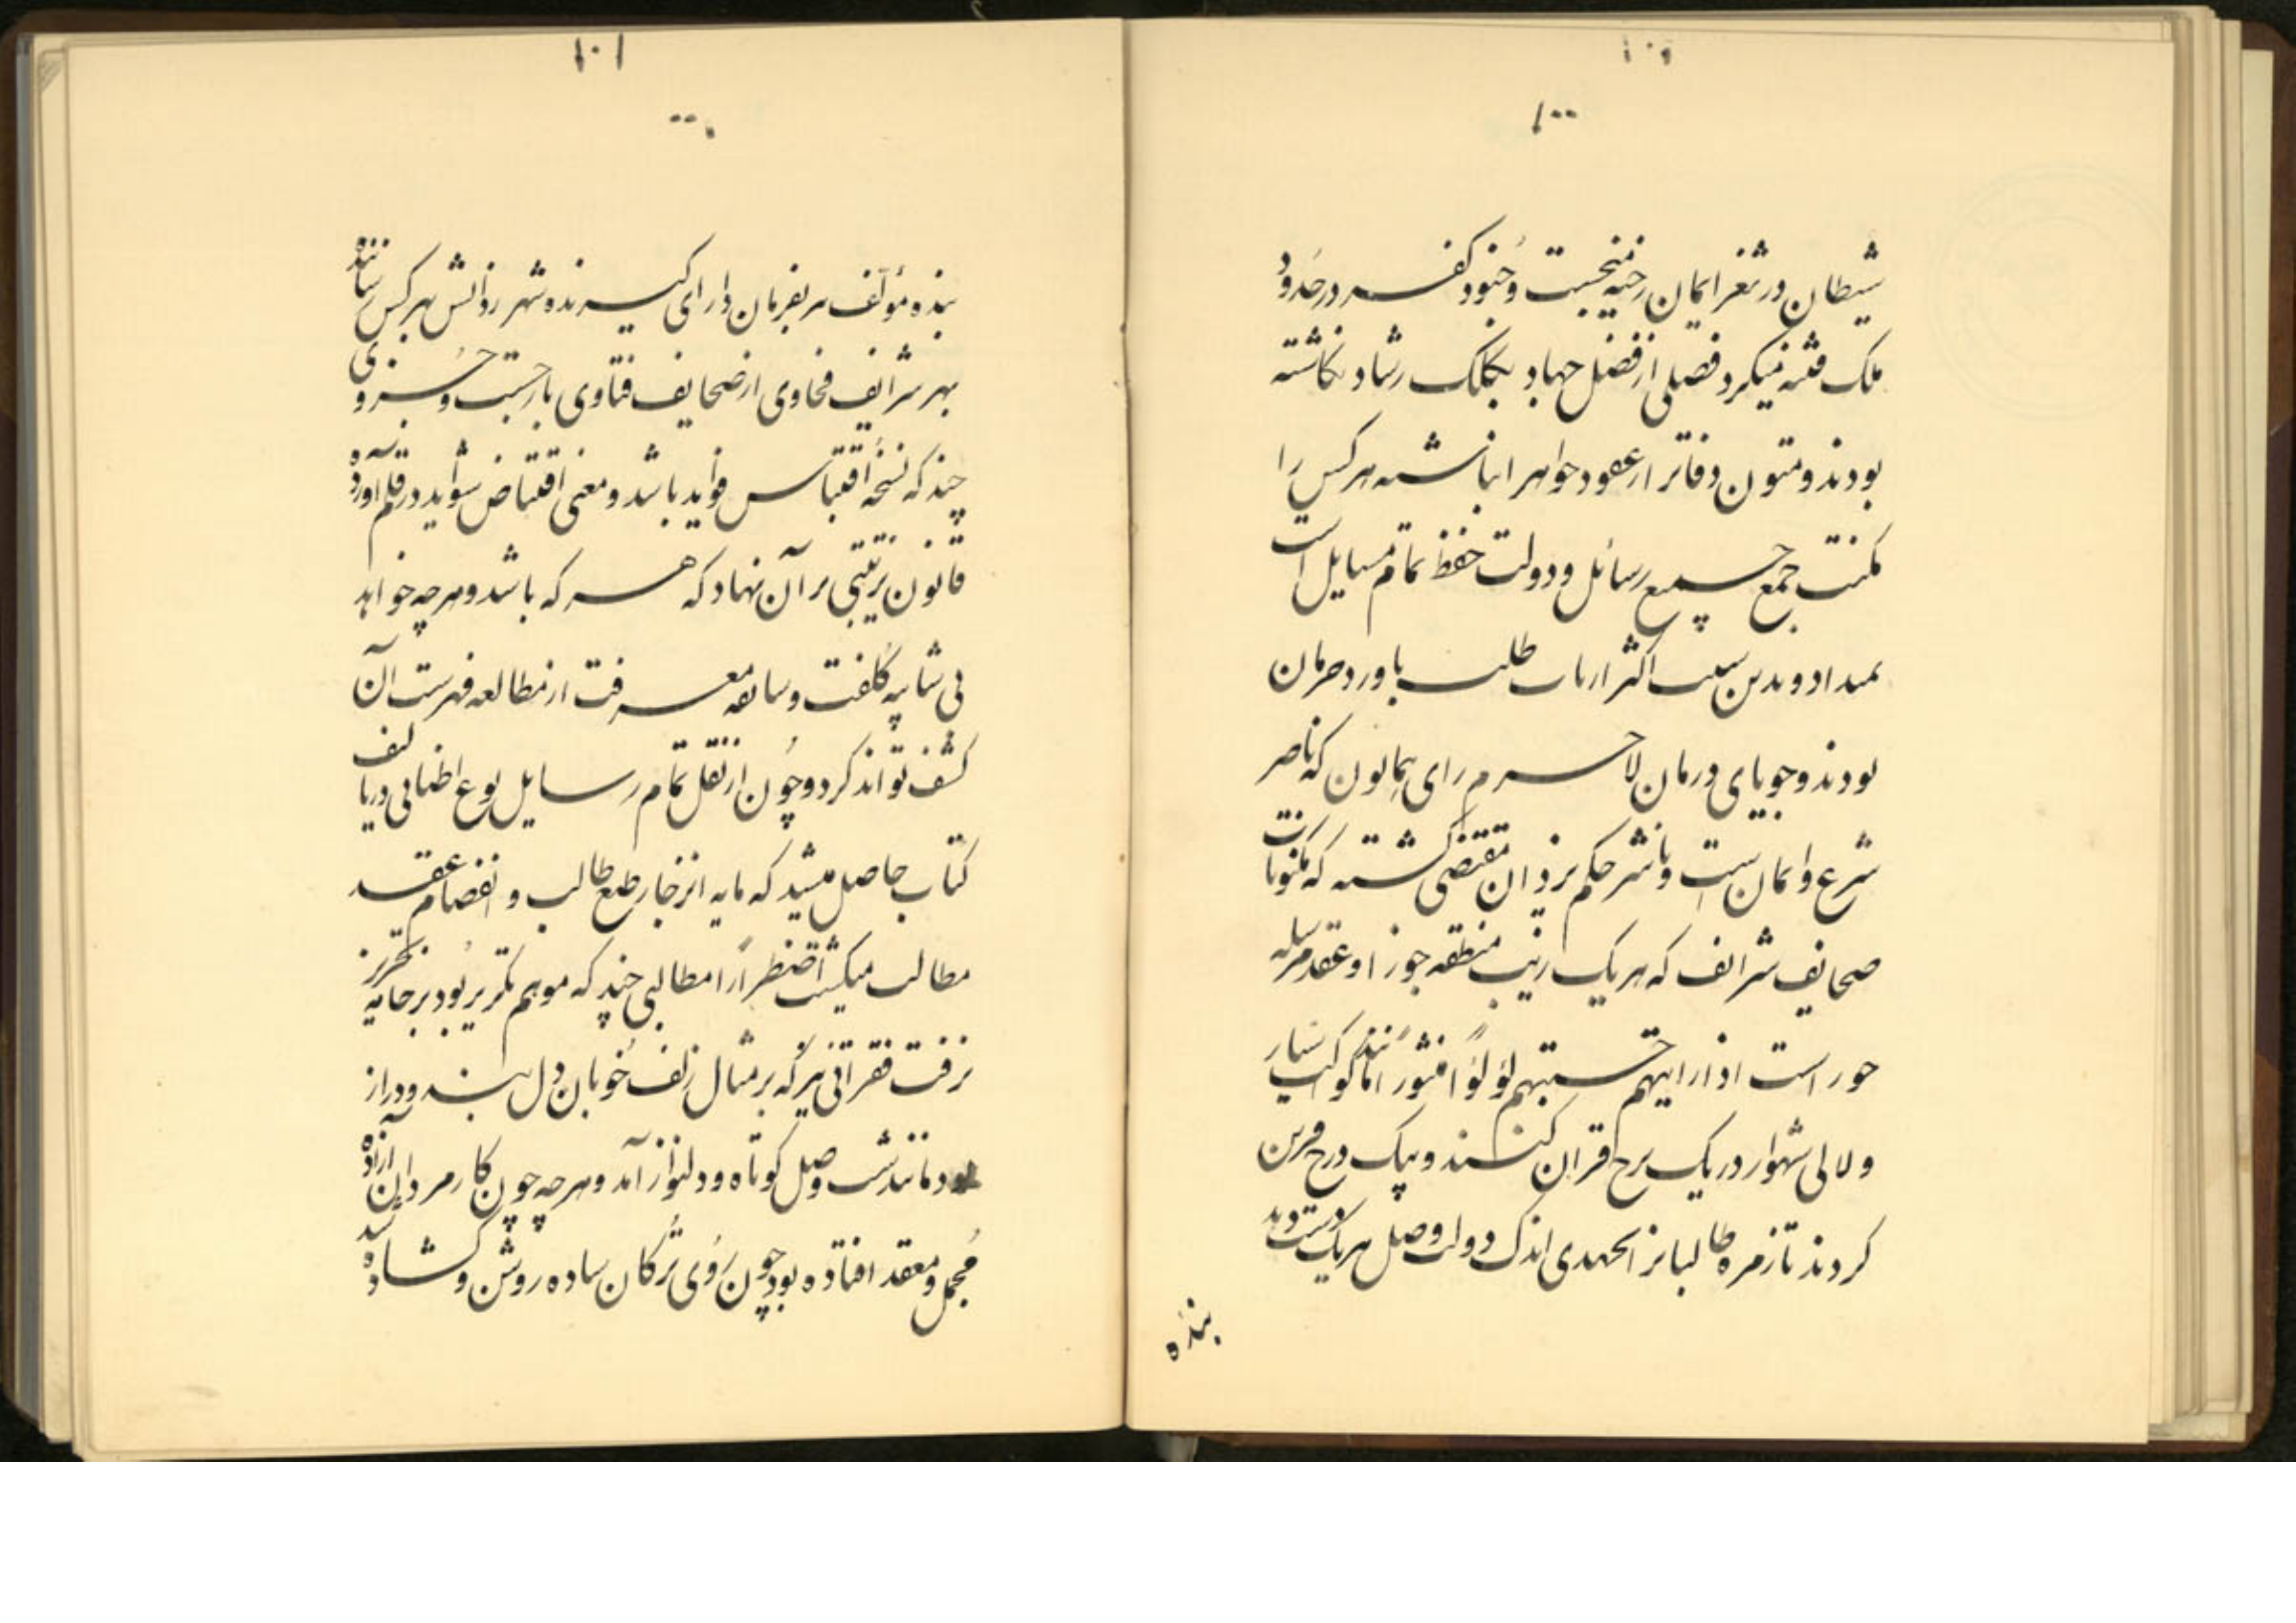 ۱۰۰
شیطان در ثغر ایمان رخنه میجست و جنود کفر در حدود
ملک فتنه میکرد فصلی از فضل جهاد بکلک رشاد نکاشته
بودند و متون دفاتر از عقود جواهر انباشته هر کس را
مکنت جمع جمیع رسائل و دولت حفظ تمام مسایل است
نمیداد و بدین سبب اکثر ارباب طلب با درد حرمان
بودند و جویای درمان لاجرم رای همایون که ناصر
شرع و ایمان است و ناشر حکم یزدان مقتضی کشته که مکنونات
صحایف شرائف که هر یک زیب منطقه جوزا و عقد مرسله
حور است اذا رایتهم حسبتهم لؤلؤا منثورا مانند کواکب سیار
و لالی شهوار در یک برج قران کنند و بیک درج قرین
کردند تا زمره طالبانرا بجهدی اندک دولت وصل هر یک دست دهد
بنده
۱۰۱
بنده مؤلف سر بفرمان دارای کیرنده شهر رذانش بهر کس رسانند
بهر شرایف فحاوی از صحایف فتاوی باز جست و جزوی
چند که نسخه اقتباس فواید باشد و معنی اقتناص شواید در قلم آورده
قانون ترتیبی بر آن نهاد که هر که باشد و هر چه خواهد
بی شایبه کلفت و سابقه معرفت از مطالعه فهرست آن
کشف تواند کرد و چون از نقل تمام رسایل نوع اطنابی در تالیف
کتاب حاصل میشد که مایه انزجار طبع طالب و انفصام عقد
مطالب میکشت اضطرارا مطالبی چند که موهم تکریر بود بر خامه تحریر
نرفت فقراتی نیز که بر مثال زلف خوبان دل بند و دراز
بود مانند شب وصل کوتاه و دلنواز آمد و هر چه چون کار مردان آزاده
مجمل و معقد افتاده بود چون روی ترکان ساده روشن و کشاده شد